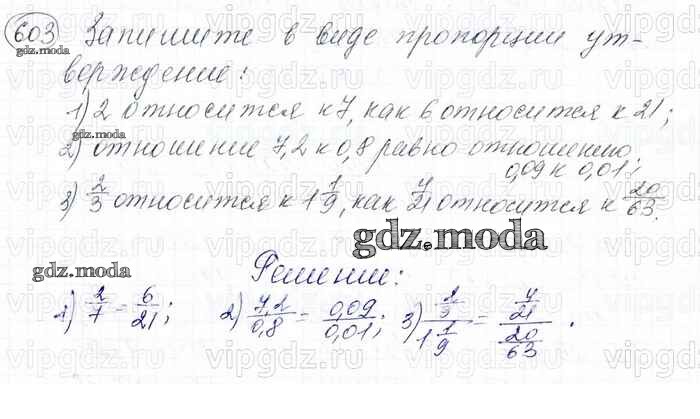 603 Запишите в виде пропорции ут-
верждение:
1) 2 относится к 7, как 6 относится к 21;
2) отношение 7,2 к 0,8 равно отношению
0,09 к 0,01;
3) 2/3 относится к 1 1/9, как 4/21 относится к 20/63.
gdz.moda
gdz.moda
gdz.moda
gdz.moda
Решение:
1) 2/7 = 6/21; 2) 7,2/0,8 = 0,09/0,01; 3) (2/3)/(1 1/9) = (4/21)/(20/63).
vipgdz.ru